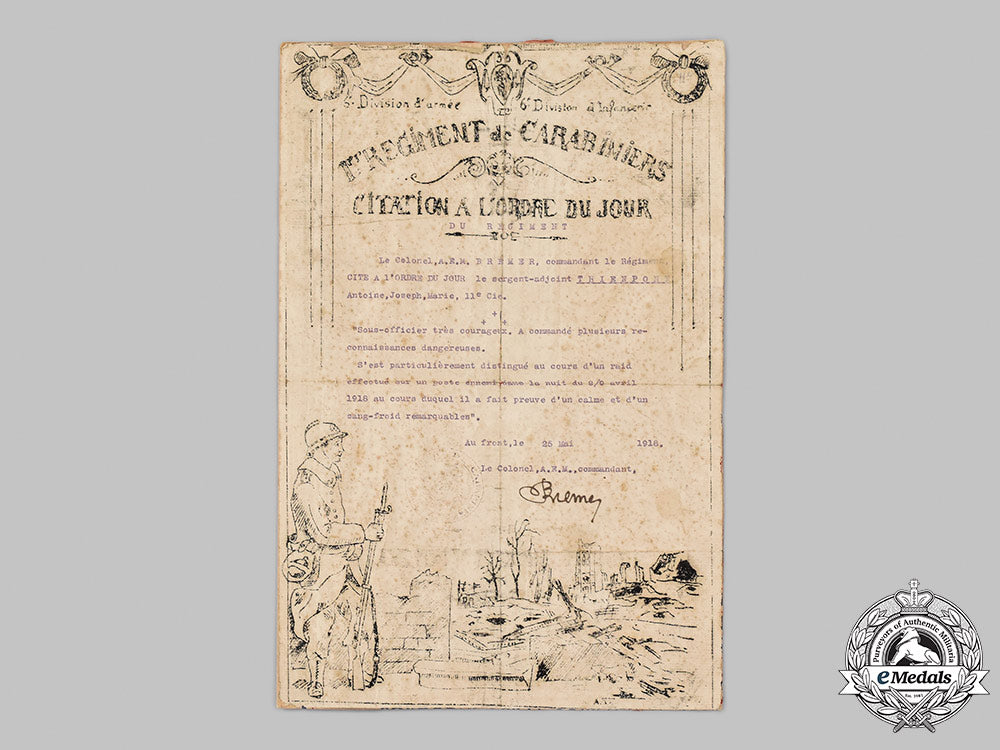 6e Division d'armée 6e Division d'Infanterie
1r REGIMENT de CARABINIERS
CITATION A L'ORDRE DU JOUR
DU REGIMENT
Le Colonel, A.E.M. BREMER, commandant le Régiment
CITE A l'ORDRE DU JOUR le sergent-adjoint
Antoine, Joseph, Marie, 11e Cie.
"Sous-officier très courageux. A commandé plusieurs re-
connaissances dangereuses.
S'est particulièrement distingué au cours d'un raid
effectué sur un poste ennemi la nuit du avril
1918 au cours duquel il a fait preuve d'un calme et d'un
sang-froid remarquables".
Au front, le 25 Mai 1918.
Le Colonel, A.E.M., commandant,
Bremer
A.T.
Purveyors of Authentic Militaria
eMedals